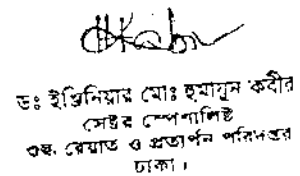 ডঃ ইঞ্জিনিয়ার মোঃ হুমায়ুন কবীর
সেক্টর স্পেশালিষ্ট
শুল্ক, রেয়াত ও প্রত্যর্পন পরিদপ্তর
ঢাকা।